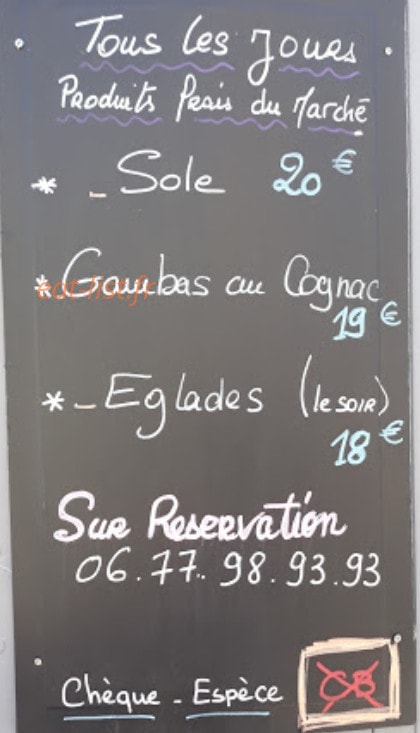 Tous les Joues
Produits Frais du Marché
* - Sole 20€
* Gambas au Cognac
eat-list.fr
19€
* - Eglades (le soir)
18€
Sur Reservation
06.77.98.93.93
Chèque - Espèce CB